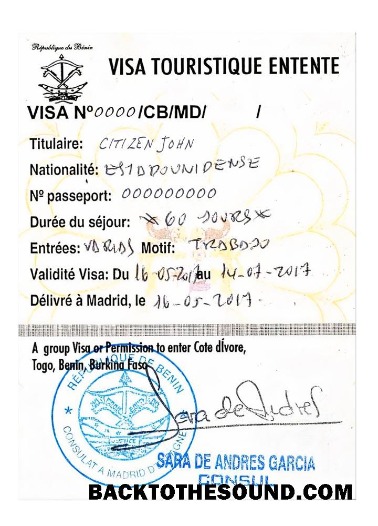 République du Bénin
VISA TOURISTIQUE ENTENTE
VISA Nº0000/CB/MD/ /
Titulaire: CITIZEN JOHN
Nationalité: ESTADOUNIDENSE
Nº passeport: 000000000
Durée du séjour: * 60 JOURS *
Entrées: VARIAS Motif: TRABAJO
Validité Visa: Du 16-05-2017 au 14-07-2017
Délivré à Madrid, le 16-05-2017.
A group Visa or Permission to enter Cote dÍvore,
Togo, Benin, Burkina Faso
REPUBLIQUE DE BENIN
CONSULAT A MADRID D'ESPAGNE
Sara de Andres
SARA DE ANDRES GARCIA
CONSUL
BACKTOTHESOUND.COM